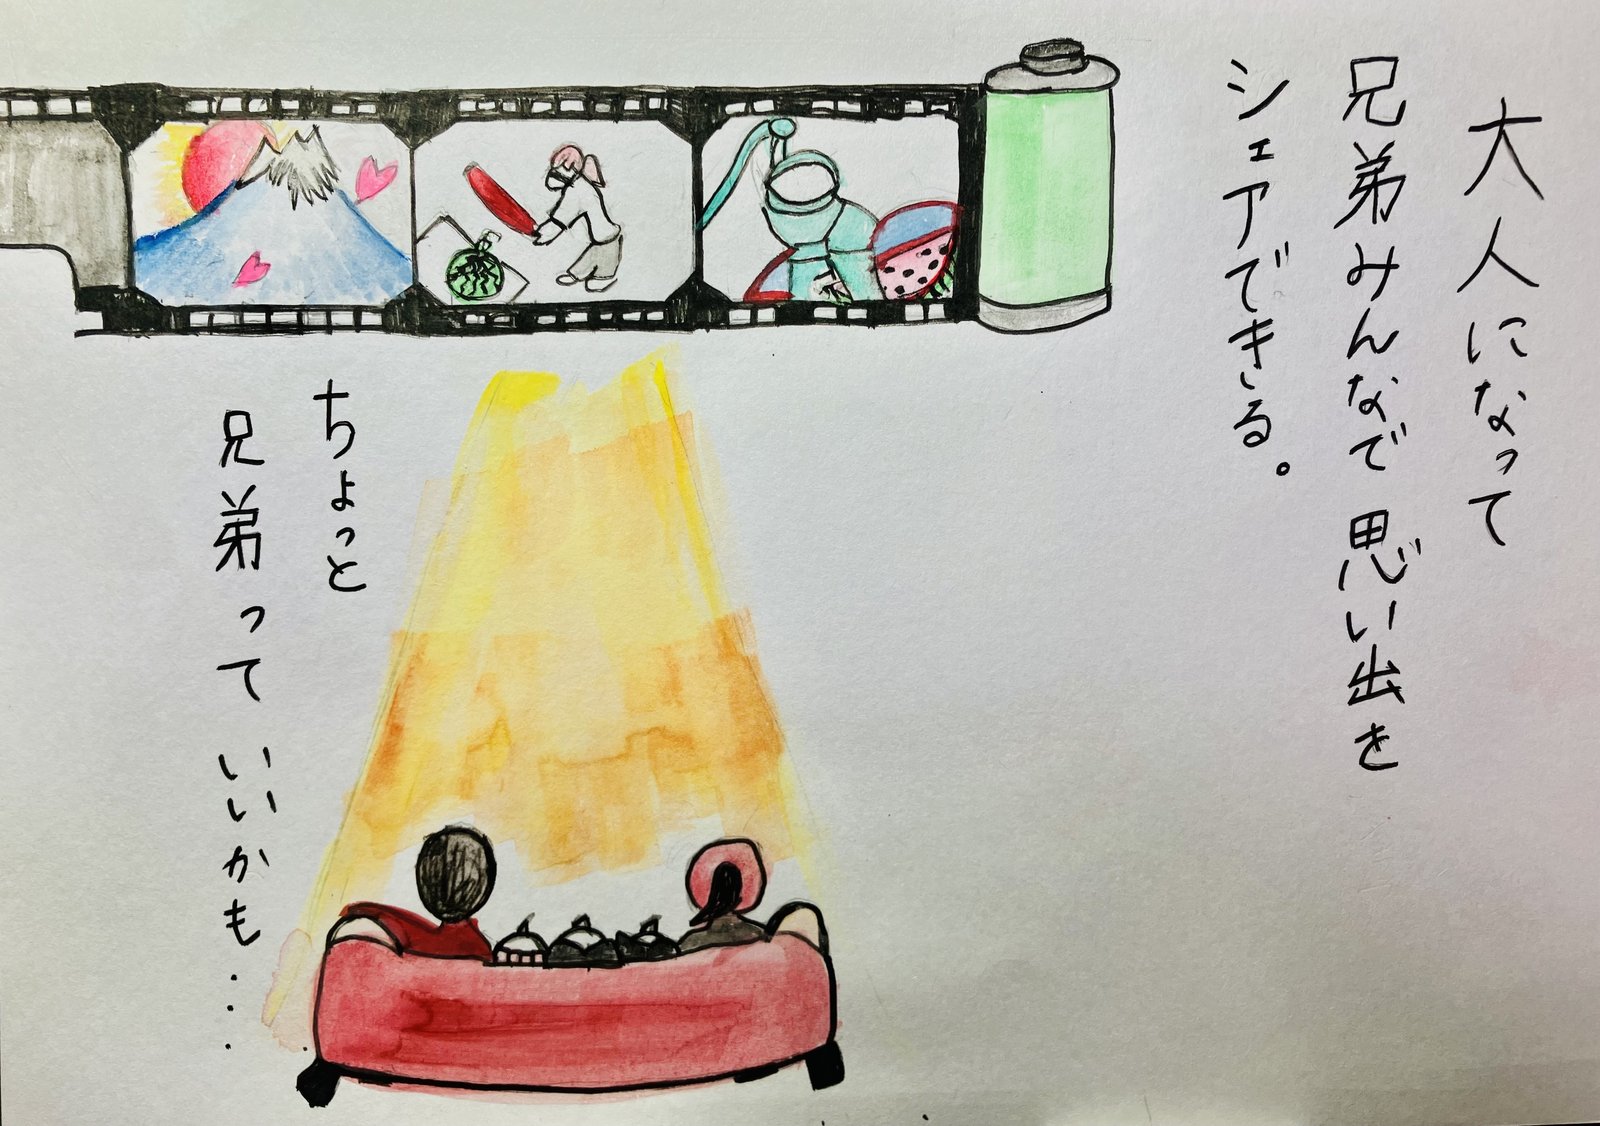 大人になって
兄弟みんなで思い出を
シェアできる。
ちょっと
兄弟っていいかも...